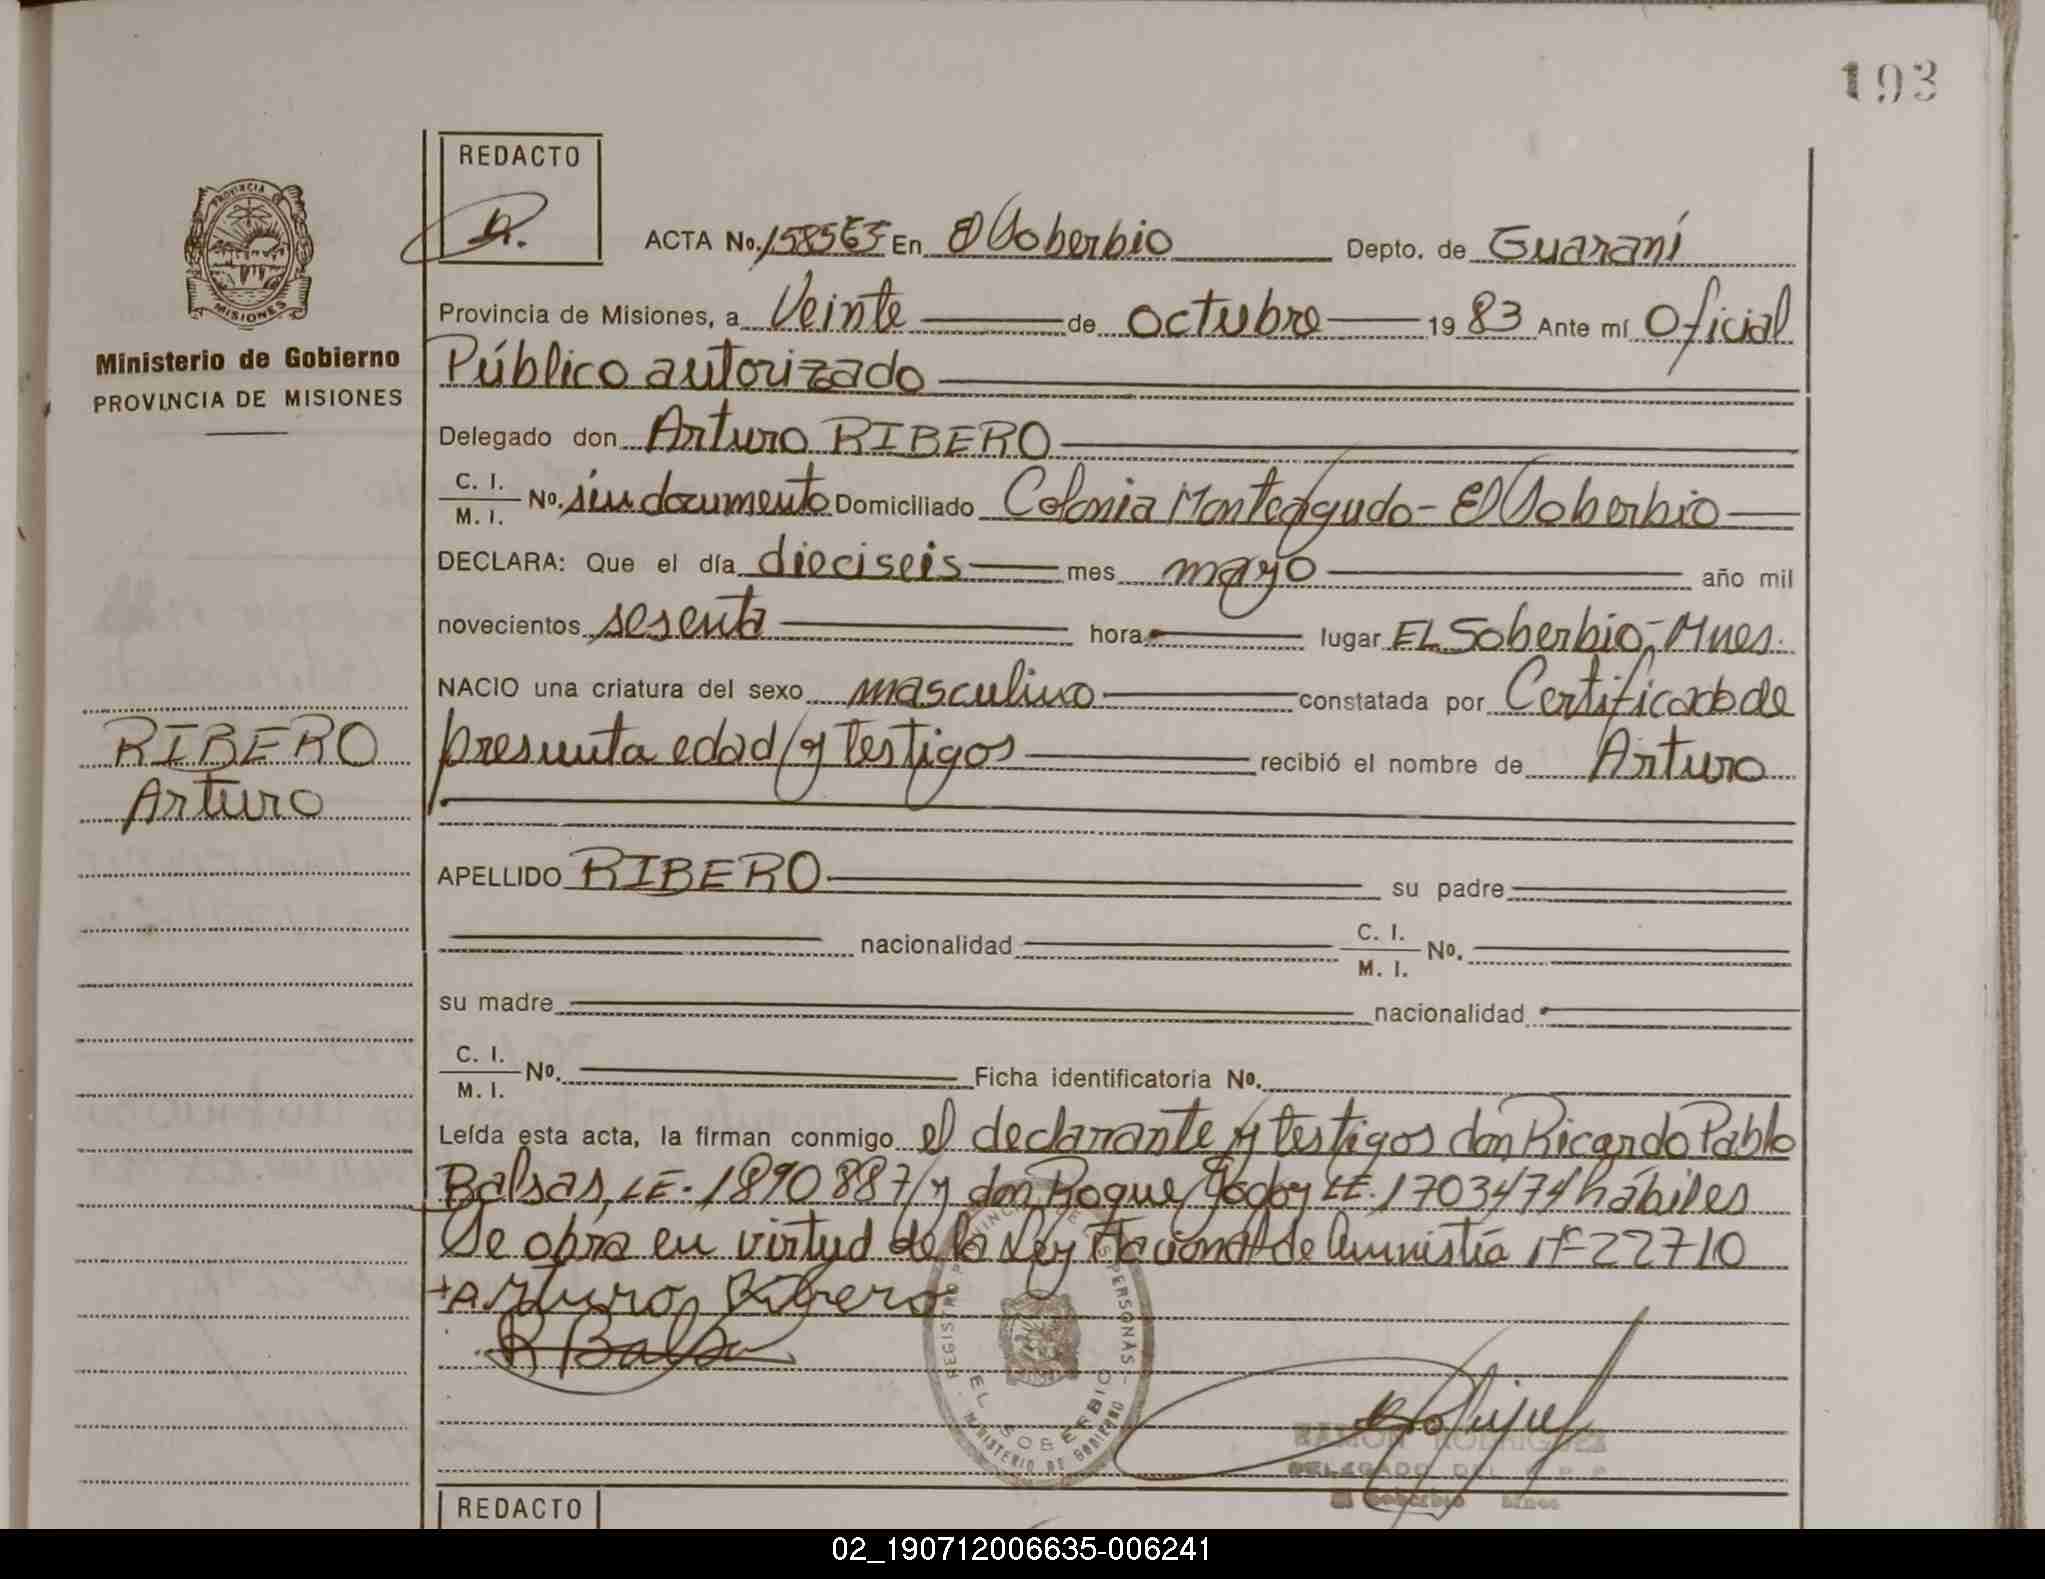 193
REDACTO
PROVINCIA
MISIONES
Ministerio de Gobierno
PROVINCIA DE MISIONES
ACTA No. 158565 En El Soberbio Depto. de Guaraní
Provincia de Misiones, a Veinte de octubre 1983 Ante mí Oficial
Público autorizado
Delegado don Arturo RIBERO
C. I.
M. I. No. sin documento Domiciliado Colonia Monteagudo - El Soberbio
DECLARA: Que el día dieciseis mes mayo año mil
novecientos sesenta hora lugar EL Soberbio, Mnes.
NACIO una criatura del sexo masculino constatada por Certificado de
presunta edad y testigos recibió el nombre de Arturo
RIBERO
Arturo
APELLIDO RIBERO su padre
nacionalidad C. I.
M. I. No.
su madre nacionalidad
C. I.
M. I. No. Ficha identificatoria No.
Leída esta acta, la firman conmigo el declarante y testigos don Ricardo Pablo
Balsas, L.E. 1890887 y don Roque Godoy L.E. 1703474 hábiles
Se obra en virtud de la Ley Nacional de Amnistía Nº 22710
+Arturo Ribero
R Balsa
REGISTRO PROVINCIAL DE LAS PERSONAS
EL SOBERBIO
MINISTERIO DE GOBIERNO
RAMON RODRIGUEZ
DELEGADO DEL R P P
El Soberbio Mnes
REDACTO
02_190712006635-006241